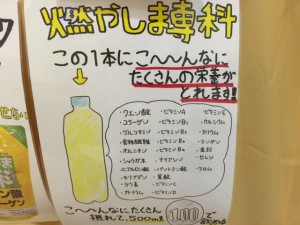 燃やしま専科
この1本にこ〜〜んなに
たくさんの栄養が
とれます!!
・クエン酸
・コラーゲン
・グルコサミン
・食物繊維
・オルニチン
・ショウガ末
・ヒアルロン酸
・モリブデン
・ヨウ素
・カリウム
・ビタミンA
・ビタミンB1
・ビタミンB2
・ビタミンB6
・ナイアシン
・パントテン酸
・葉酸
・ビタミンC
・ビタミンD
・ビタミンE
・カルシウム
・マンガン
・亜鉛
・セレン
・クロム
こ〜〜んなにたくさん
摂れて、500ml
100で
飲める